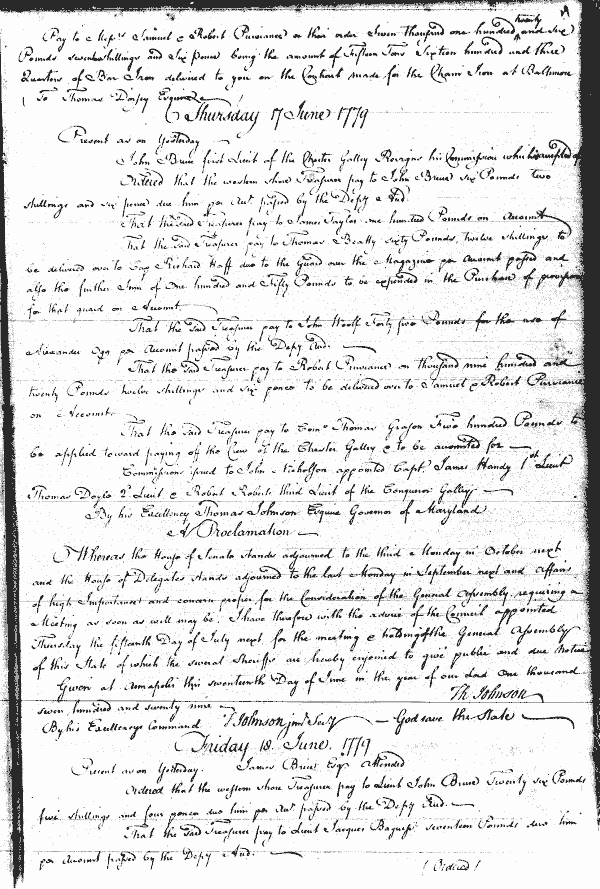 twenty
Pay to Messrs Samuel & Robert Purviance or their order Seven thousand one hundred and six
Pounds seven shillings and Six pence being the amount of Fifteen Tons Sixteen hundred and three
Quarters of Bar Iron delivered to you on the Contract made for the Cham Iron at Baltimore
To Thomas Dorsey Esquire
Thursday 17 June 1779
Present as on Yesterday
John Bruce first Lieut of the Chester Galley Resigns his Commission which is accepted of
Ordered that the western shore Treasurer pay to John Bruce Six Pounds two
shillings and six pence due him per Acct passed by the Depy Aud.
That the said Treasurer pay to James Taylor one hundred Pounds on Account
That the said Treasurer pay to Thomas Beatty Sixty Pounds, twelve shillings, to
be delivered over to Cap Richard Haff due to the Guard over the Magazine per Account passed and
also the further Sum of One hundred and Fifty Pounds to be expended in the Purchase of provisions
for that guard on Account.
That the said Treasurer pay to John Woolf Forty five Pounds for the use of
Alexander Ogg per Account passed by the Depy Aud.
That the said Treasurer pay to Robert Purviance on thousand nine hundred and
twenty Pounds twelve shillings and six pence to be delivered over to Samuel & Robert Purviance
on Account.
That the said Treasurer pay to Como Thomas Grason Two hundred Pounds to
be applied toward paying of the Crew of the Chester Galley & to be accounted for
Commission issued to John Nicholson appointed Capt. James Handy 1st Lieut
Thomas Doyle 2d Lieut & Robert Roberts third Lieut of the Conqueror Galley
By his Excellency Thomas Johnson Esquire Governor of Maryland
A Proclamation
Whereas the House of Senate stands adjourned to the third Monday in October next
and the House of Delegates stands adjourned to the last Monday in September next and Affairs
of high Importance and concern proper for the Consideration of the General Assembly, requiring a
Meeting as soon as well may be. I have therefore with the advice of the Council appointed
Thursday the fifteenth Day of July next for the meeting & holding of the General Assembly
of this State of which the several Sheriffs are hereby enjoined to give public and due Notice
Given at Annapolis this seventeenth Day of June in the year of our Lord One thousand
seven hundred and seventy nine
Th Johnson
By his Excellencys Command T. Johnson junr Secy God save the State
Friday 18. June. 1779
Present as on Yesterday. James Brice Esqr attended
Ordered that the western shore Treasurer pay to Lieut John Bruce Twenty six Pounds
five shillings and four pence due him per Acct passed by the Depy Aud.
That the said Treasurer pay to Lieut Jacques Baques seventeen Pounds due him
per Account passed by the Depy Aud.
(Ordered)